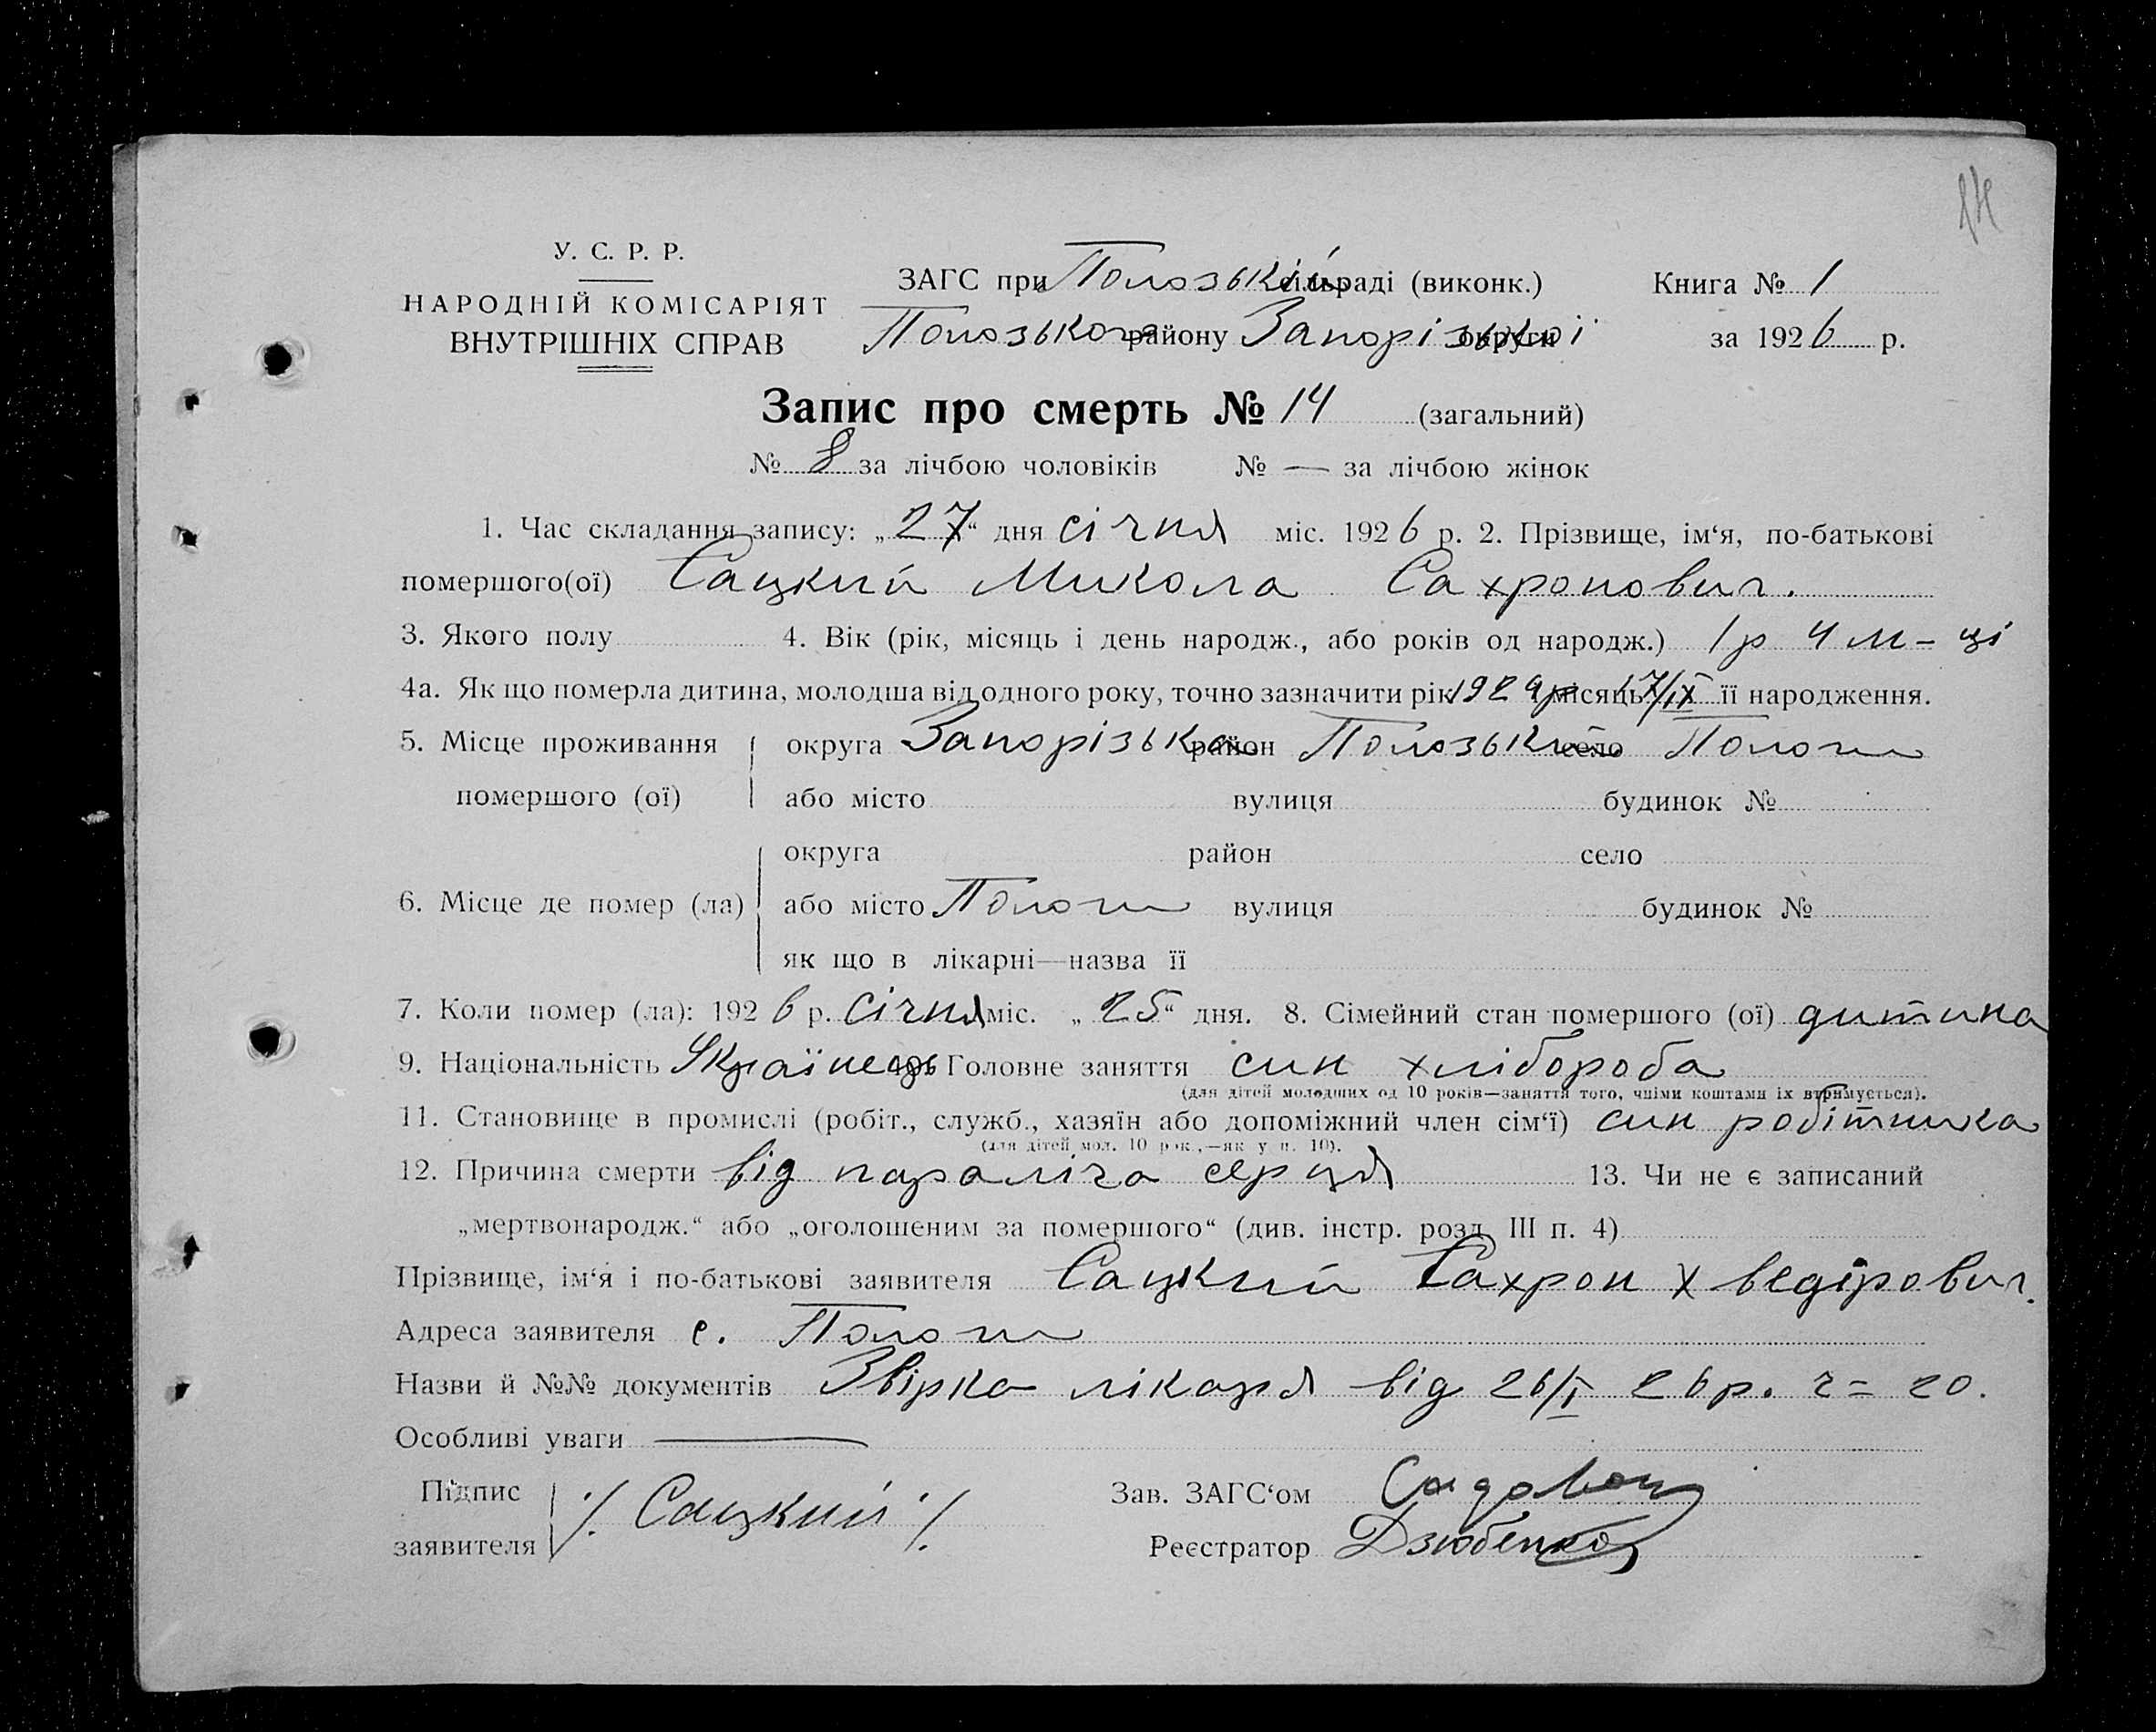 14
У. С. Р. Р.
НАРОДНІЙ КОМІСАРІЯТ
ВНУТРІШНІХ СПРАВ
ЗАГС при Полозькій сільраді (виконк.) Книга № 1
Полозького району Запорізької округи за 1926 р.
Запис про смерть № 14 (загальний)
№ 8 за лічбою чоловіків № — за лічбою жінок
1. Час складання запису: „27“ дня січня міс. 1926 р. 2. Прізвище, ім‘я, по-батькові
помершого(ої) Сацкий Микола Сахронович.
3. Якого полу 4. Вік (рік, місяць і день народж., або років од народж.) 1 р 4 м-ці
4а. Як що померла дитина, молодша від одного року, точно зазначити рік 1924 р місяць 17/IX її народження.
5. Місце проживання округа Запорізька район Полозький село Пологи
помершого (ої) або місто вулиця будинок №
округа район село
6. Місце де помер (ла) або місто Пологи вулиця будинок №
як що в лікарні—назва її
7. Коли помер (ла): 1926 р. січня міс. „25“ дня. 8. Сімейний стан помершого (ої) дитина
9. Національність Українець Головне заняття син хлібороба
(для дітей молодших од 10 років—заняття того, чиїми коштами їх втримується).
11. Становище в промислі (робіт., служб., хазяїн або допоміжний член сім‘ї) син робітника
(для дітей мол. 10 рок.,—як у п. 10).
12. Причина смерти від параліча серця 13. Чи не є записаний
„мертвонародж.“ або „оголошеним за помершого“ (див. інстр. розд. III п. 4)
Прізвище, ім‘я і по-батькові заявителя Сацкий Сахрон Хведірович.
Адреса заявителя с. Пологи
Назви й №№ документів Звірка лікаря від 26/I 26 р. ч= 20.
Особливі уваги —
Підпис
заявителя /. Сацкий ./
Зав. ЗАГС‘ом
Реєстратор Дзюбенко